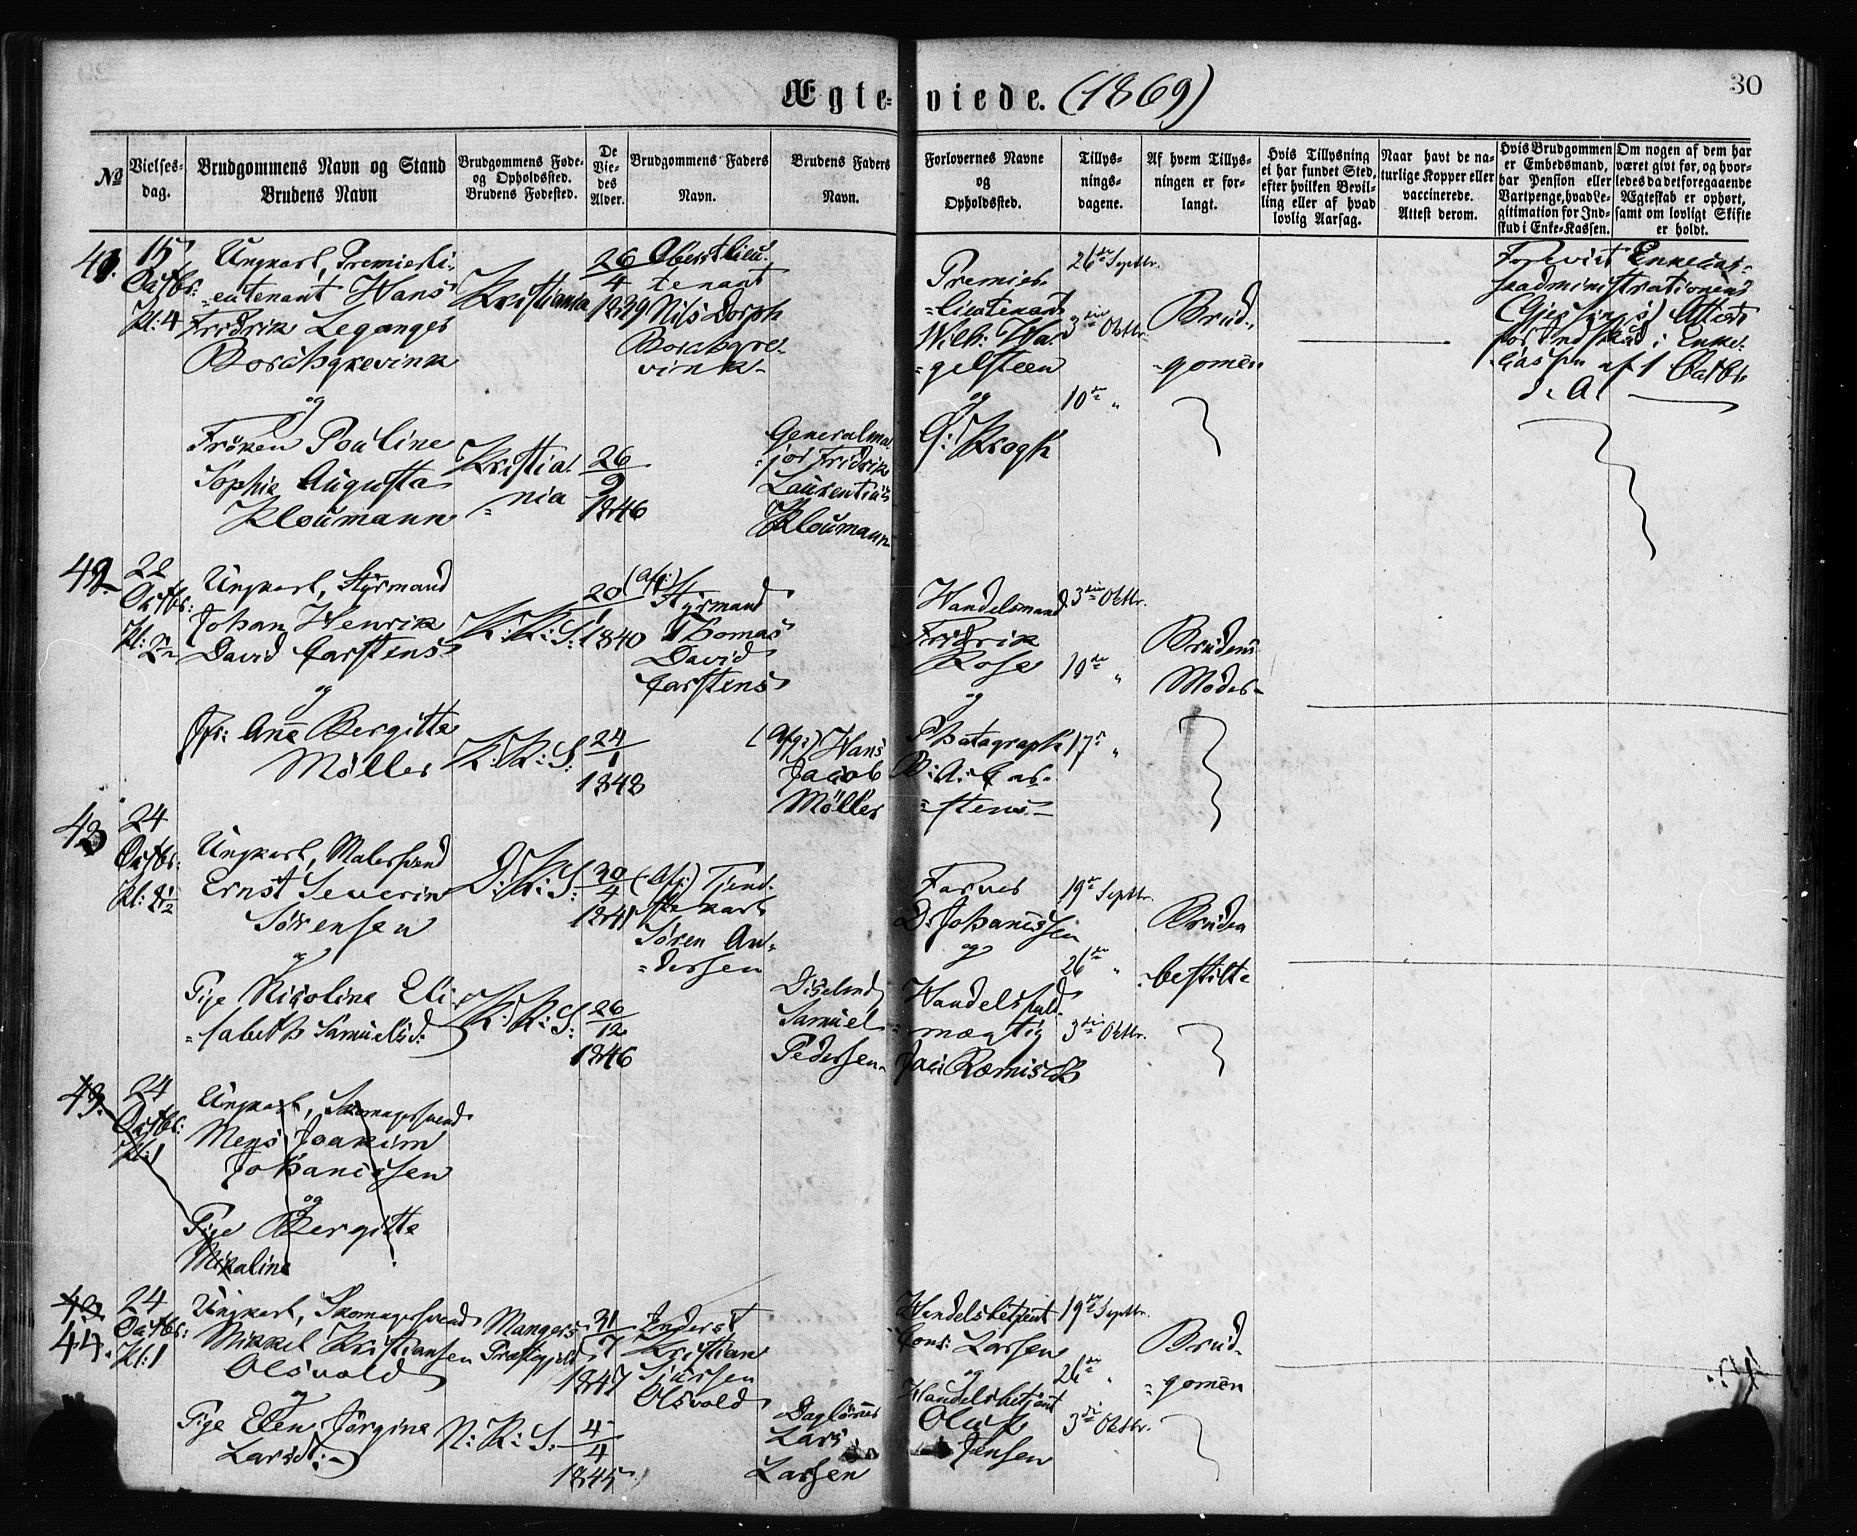 30
Ægte= viede. (1869)
№
Vielses-
dag.
Brudgommens Navn og Stand
Brudens Navn
Brudgommens Føde-
og Opholdssted.
Brudens Fødested.
De
Vie-
des
Alder.
Brudgommens Faders
Navn.
Brudens Faders
Navn.
Forlovernes Navne
og
Opholdssted.
Tillys-
nings-
dagene.
Af hvem Tillys-
ningen er for-
langt.
Hvis Tillysning
ei har fundet Sted,
efter hvilken Bevil-
ling eller af hvad
lovlig Aarsag.
Naar havt de na-
turlige Kopper eller
vaccinerede.
Attest derom.
Hvis Brudgommen
er Embedsmand,
har Pension eller
Vartpenge, hvad Le-
gitimation for Ind-
skud i Enke-Kassen.
Om nogen af dem har
været givt før, og hvor-
ledes da det foregaaende
Ægteskab er ophørt,
samt om lovligt Skifte
er holdt.
41.
15
Octbr:
Kl: 4
Ungkarl, Premierli-
eutenant Hans
Fredrik Leganger
Borchgrevink
og
Frøken Pauline
Sophie Augusta
Kloumann
Kristiania
Kristia-
nia
26
4
1839
26
9
1846
Oberstlieu-
tenant
Nils Dorph
Borchgre-
vink
Generalma-
jor Fredrik
Laurentius
Kloumann
Premier-
lieutenant
Wilh: Wan-
gelsteen
og
G: Krogh
26de Septbr.
3die Oktbr.
10de "
Brud-
gomen
Forevist Enkecas-
seadministrationens
Attest
for Indskud i Enke-
cassen af 1 Octbr.
d. A.
42
22
Octbr:
Ungkarl, Styrmand
Johan Henrik
David Carstens
og
Jfr: Ane Bergitte
Møller
K: K: S:
K: K: S:
20
1
1840
24
1
1848
(Afg:)
Styrmand
Thomas
David
Carstens
(Afg:) Hans
Jacob
Møller
Handelsmand
Fredrik
Rose
og
Photograph
Car-
stens
3die Oktbr.
10de "
17de "
Brudens
Moder
43
24
Octbr:
Ungkarl, Malersvend
Ernst Severin
Sørensen
og
Pige Nicoline Eli-
sabeth Samuelsd:
D: K: S:
K: K: S:
30
4
1841
26
12
1846
(Afg:) Tjene-
stekarl
Søren An-
dersen
Samuel
Pedersen
Farver
D: Johanessen
og
Handelsfuld-
mægtig
Jac: Ræmisch
19de Septbr.
26de "
3die Oktbr.
Bruden
bestilte
43.
24
Octbr:
Kl: 1
Ungkarl, Skomagersvend
Mons Joakim
Johannessen
og
Pige Bergitte
Mikaline
43
44.
24
Octbr:
Kl: 1
Ungkarl, Skomagersvend
Mikkel Kristiansen
Olsvold
og
Pige Elen Jørgine
Larsdt:
Mangers
Præstegjeld
N: K: S:
31
7
1847
4
4
1845
Inderst
Kristian
Olsvold
Daglønner
Lars
Larsen
Handelsbetjent
Cons: Larsen
og
Handelsbetjent
Oluf
Jensen
19de Septbr.
26de "
3die Oktbr.
Brud-
gomen